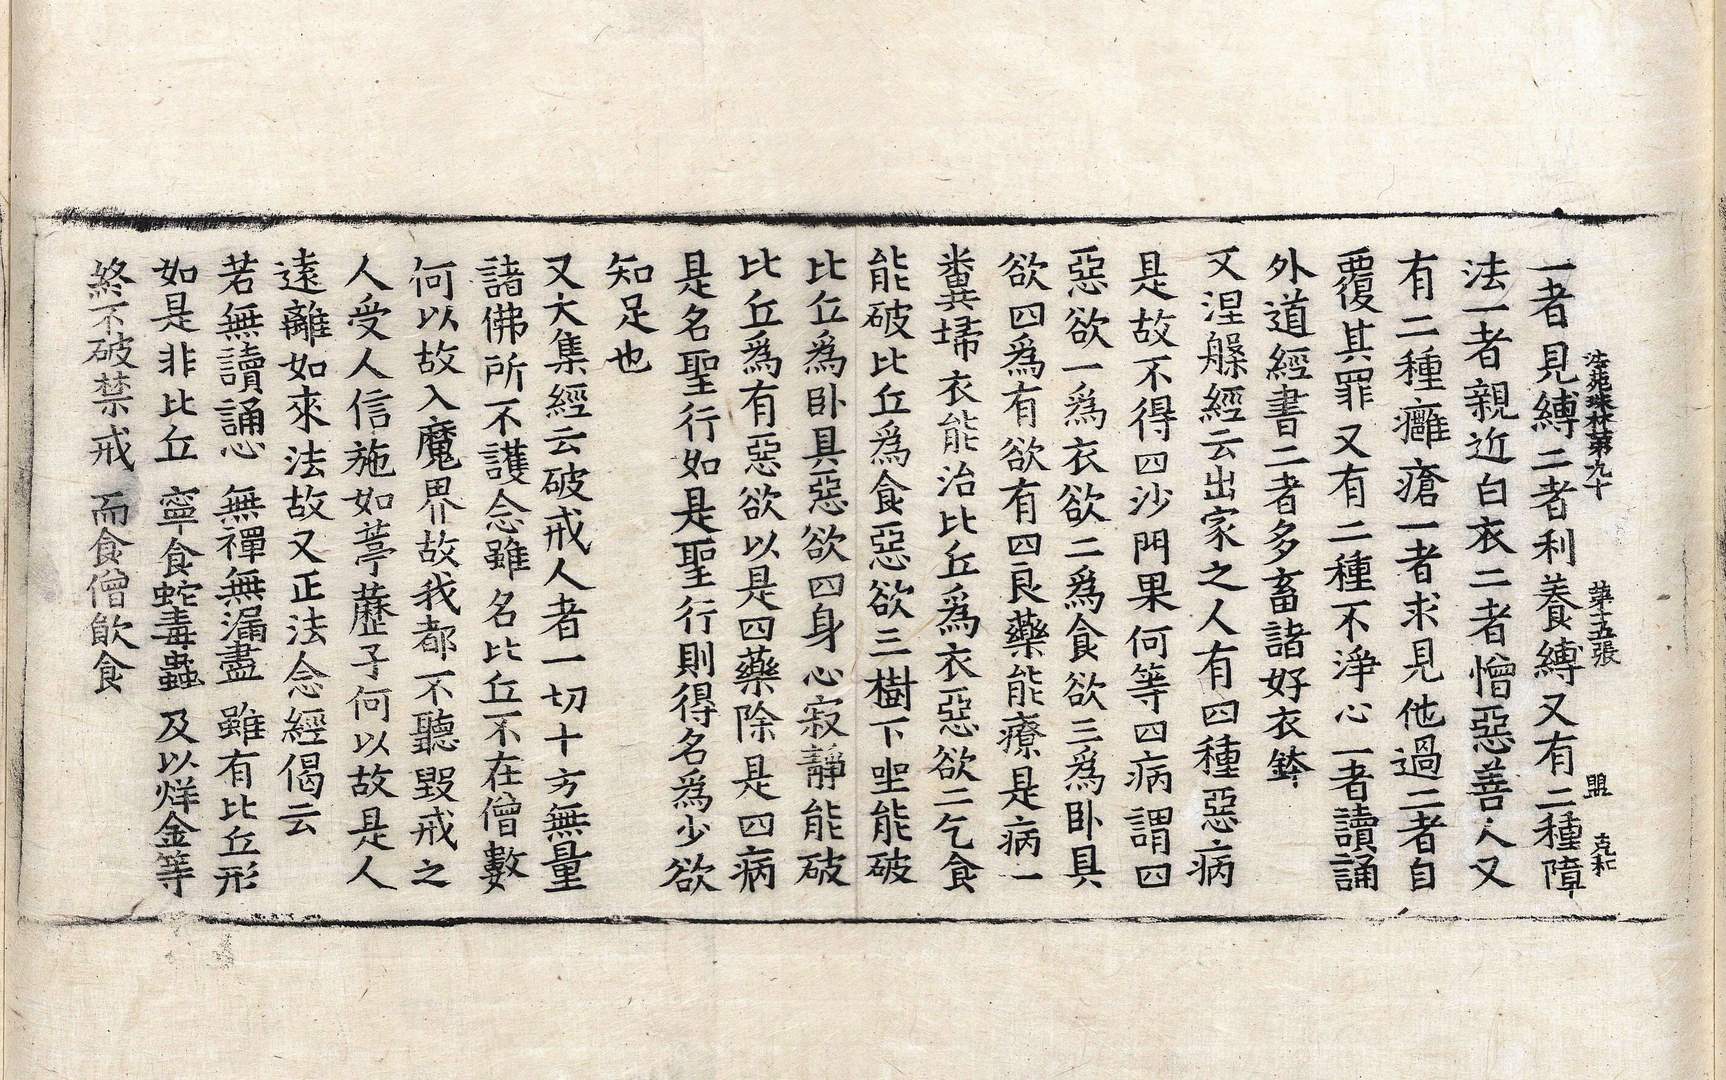 法苑珠林第九十 第十五張 盟 克和
一者見縛二者利養縛又有二種障
法一者親近白衣二者憎惡善人又
有二種癰瘡一者求見他過二者自
覆其罪又有二種不淨心一者讀誦
外道經書二者多畜諸好衣鉢
又涅槃經云出家之人有四種惡病
是故不得四沙門果何等四病謂四
惡欲一爲衣欲二爲食欲三爲臥具
欲四爲有欲有四良藥能療是病一
糞掃衣能治比丘爲衣惡欲二乞食
能破比丘爲食惡欲三樹下坐能破
比丘爲臥具惡欲四身心寂靜能破
比丘爲有惡欲以是四藥除是四病
是名聖行如是聖行則得名爲少欲
知足也
又大集經云破戒人者一切十方無量
諸佛所不護念雖名比丘不在僧數
何以故入魔界故我都不聽毀戒之
人受人信施如葶藶子何以故是人
遠離如來法故又正法念經偈云
若無讀誦心 無禪無漏盡 雖有比丘形
如是非比丘 寧食蛇毒蟲 及以烊金等
終不破禁戒 而食僧飲食